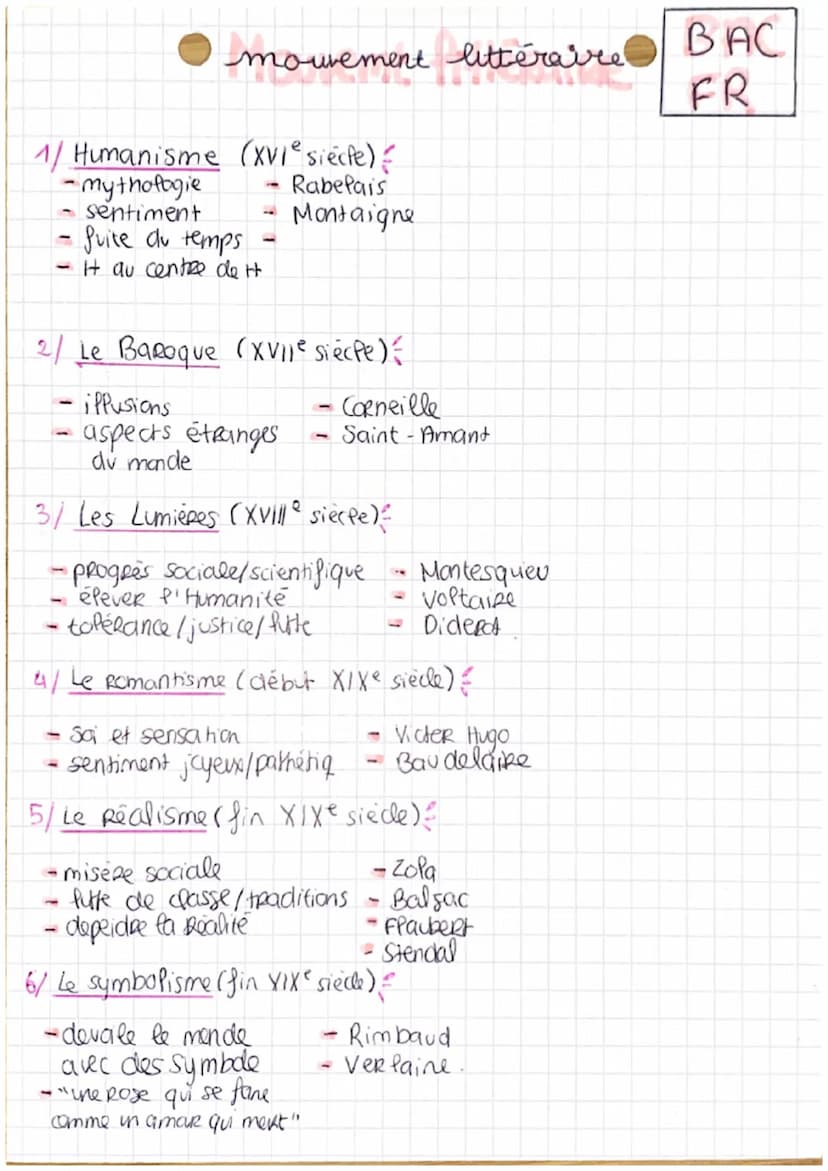 mouvement littéraire
BAC
FR
1/ Humanisme (XVIe siècle)
- mythologie - Rabelais
- sentiment - Montaigne
- fuite du temps -
- H au centre de H
2/ Le Baroque (XVIIe siècle)
- illusions - Corneille
- aspects étranges - Saint-Amant
du monde
3/ Les Lumières (XVIIIe siècle)
- progrès sociale/scientifique - Montesquieu
- élever l'Humanité - Voltaire
- tolérance/justice/lutte - Diderot
4/ Le romantisme (début XIXe siècle)
- Soi et sensation - Victor Hugo
- sentiment joyeux/pathétiq - Baudelaire
5/ Le Réalisme (fin XIXe siècle)
- misère sociale - Zola
- lutte de classe/traditions - Balzac
- depeidre la Réalité - Flaubert
- Stendal
6/ Le symbolisme (fin XIXe siècle)
- devale le monde - Rimbaud
avec des symbole - Verlaine.
- "une rose qui se fane
comme un amour qui meurt"